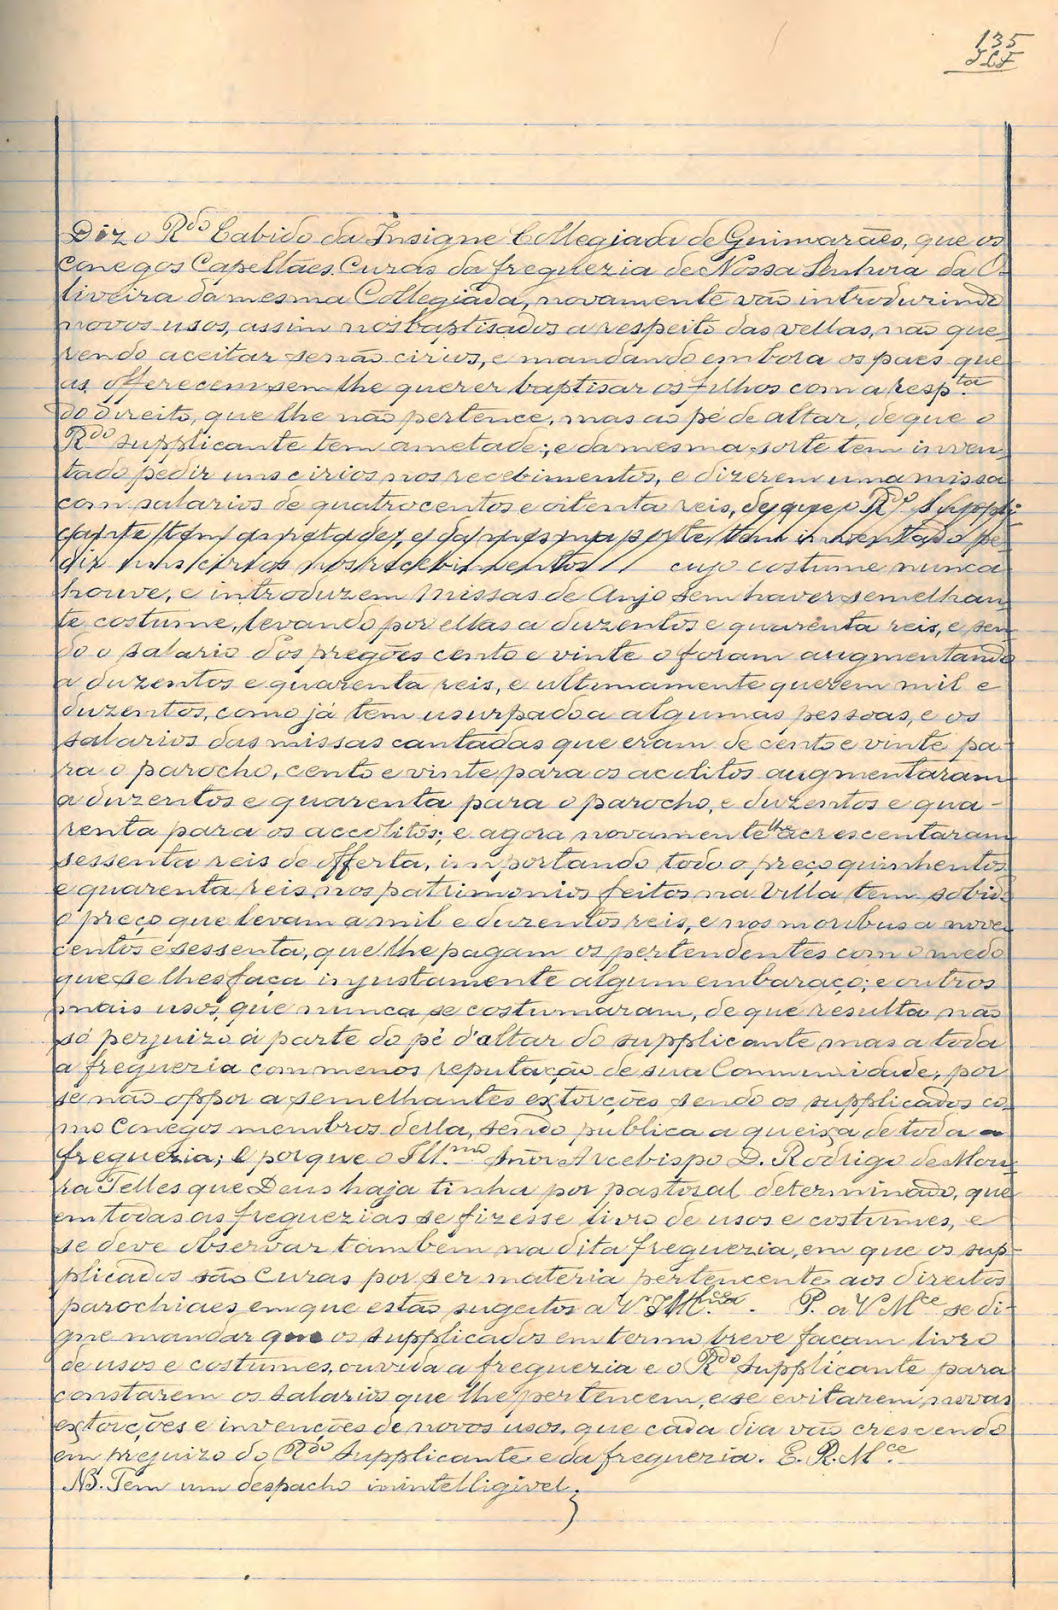 135
JLF
Diz o Rdo Cabido da Insigne Collegiada de Guimarães, que os
Conegos Capellães Curas da freguezia de Nossa Senhora da O-
liveira da mesma Collegiada, novamente vão introduzindo
novos usos, assim nos baptisados a respeito das vellas, não que-
rendo aceitar senão cirios, e mandando embora os paes que
as offerecem sem lhe querer baptisar os filhos com a respta
do direito, que lhe não pertence, mas ao pé de altar, de que o
Rdo supplicante tem ametade; e da mesma sorte tem inven-
tado pedir uns cirios nos recebimentos, e dizerem uma missa
com salarios de quatrocentos e oitenta reis, de que o Rdo Suppli
cante tem ametade; e da mesma sorte tem inventado pe-
dir uns cirios nos recebimentos cujo costume nunca
houve, e introduzem Missas de Anjo sem haver semelhan-
te costume, levando por ellas a duzentos e quarenta reis, e sen-
do o salario dos pregões cento e vinte o foram augmentando
a duzentos e quarenta reis, e ultimamente querem mil e
duzentos, como já tem usurpado a algumas pessoas, e os
salarios das missas cantadas que eram de cento e vinte pa-
ra o parocho, cento e vinte para os acolitos augmentaram
a duzentos e quarenta para o parocho, e duzentos e qua-
renta para os accolitos; e agora novamente lhe acrescentaram
sessenta reis de offerta, importando todo o preço quinhentos
e quarenta reis, nos patrimonios feitos na Villa tem sobido
o preço que levam a mil e duzentos reis, e nos moribus a nove-
centos e sessenta, que lhe pagam os pertendentes com o medo
que se lhes faça injustamente algum embaraço; e outros
mais usos, que nunca se costumaram, de que resulta não
só perjuizo á parte do pé d'altar do supplicante mas a toda
a freguezia com menos reputação de sua Communidade, por
se não oppor a semelhantes extorções sendo os supplicados co-
mo Conegos membros della, sendo publica a queixa de toda a
freguezia; E porque o Ill.mo Snr Arcebispo D. Rodrigo de Mou-
ra Telles que Deus haja tinha por pastoral determinado, que
em todas as freguezias se fizesse livro de usos e costumes, e
se deve observar tambem na dita freguezia, em que os sup-
plicados são Curas por ser materia pertencente aos direitos
parochiaes, em que estão sugeitos a V. P. a V Mce se di-
gne mandar que os supplicados em termo breve façam livro
de usos e costumes, ouvida a freguezia e o Rdo Supplicante para
constarem os salarios que lhe pertencem, e se evitarem novas
extorções e invenções de novos usos, que cada dia vão crescendo
em prejuizo do Rdo Supplicante e da freguezia. E. R. Mce
NB. Tem um despacho inintelligivel.